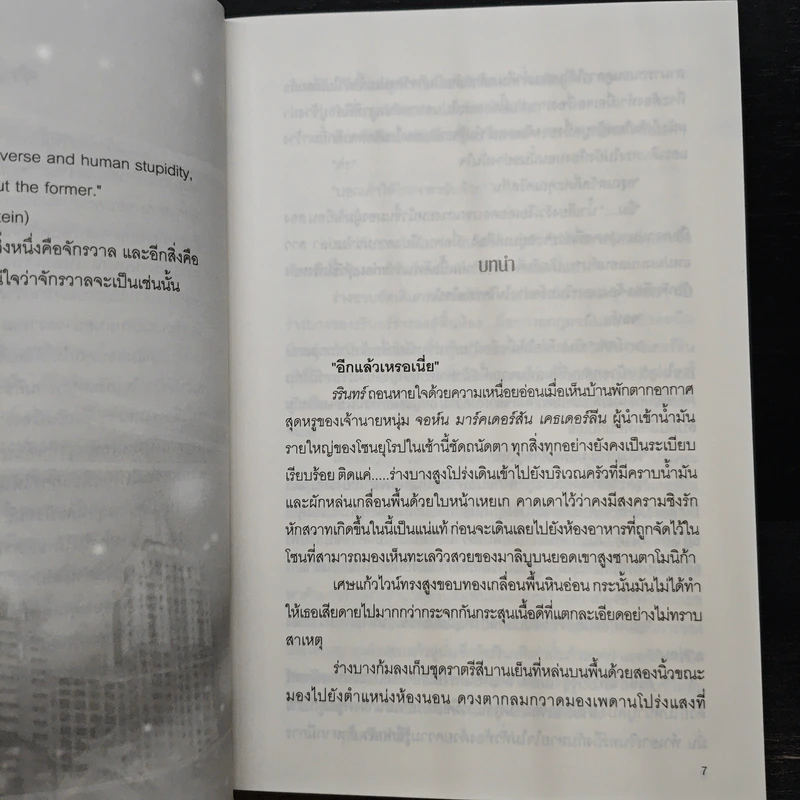 verse and human stupidity,
ut the former."
tein)
หนึ่งคือจักรวาล และอีกสิ่งคือ
ใจว่าจักรวาลจะเป็นเช่นนั้น
บทนำ
"อีกแล้วเหรอเนี่ย"
รรินทร์ ถอนหายใจด้วยความเหนื่อยอ่อนเมื่อเห็นบ้านพักตากอากาศ
สุดหรูของเจ้านายหนุ่ม จอห์น มาร์คเดอร์สัน เคธเดอร์ลีน ผู้นำเข้าน้ำมัน
รายใหญ่ของโซนยุโรปในเช้านี้ชัดถนัดตา ทุกสิ่งทุกอย่างยังคงเป็นระเบียบ
เรียบร้อย ติดแค่.....ร่างบางสูงโปร่งเดินเข้าไปยังบริเวณครัวที่มีคราบน้ำมัน
และผักหล่นเกลื่อนพื้นด้วยใบหน้าเหยเก คาดเดาไว้ว่าคงมีสงครามชิงรัก
หักสวาทเกิดขึ้นในนี้เป็นแน่แท้ ก่อนจะเดินเลยไปยังห้องอาหารที่ถูกจัดไว้ใน
โซนที่สามารถมองเห็นทะเลวิวสวยของมาลิบูบนยอดเขาสูงซานตาโมนิก้า
เศษแก้วไวน์ทรงสูงขอบทองเกลื่อนพื้นหินอ่อน กระนั้นมันไม่ได้ทำ
ให้เธอเสียดายไปมากกว่ากระจกกันกระสุนเนื้อดีที่แตกละเอียดอย่างไม่ทราบ
สาเหตุ
ร่างบางก้มลงเก็บชุดราตรีสีบานเย็นที่หล่นบนพื้นด้วยสองนิ้วขณะ
มองไปยังตำแหน่งห้องนอน ดวงตากลมกวาดมองเพดานโปร่งแสงที่
7